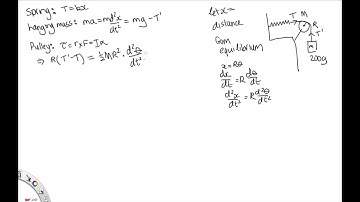 Spring: T=kx
hanging mass: ma = m d²x/dt² = mg - T'
Pulley: τ = r×F = Iα
⇒ R(T'-T) = ½MR² · d²θ/dt²
let x =
distance
from
equilibrium
x = Rθ
dx/dt = R dθ/dt
d²x/dt² = R d²θ/dt²
T M
R
T'
200g